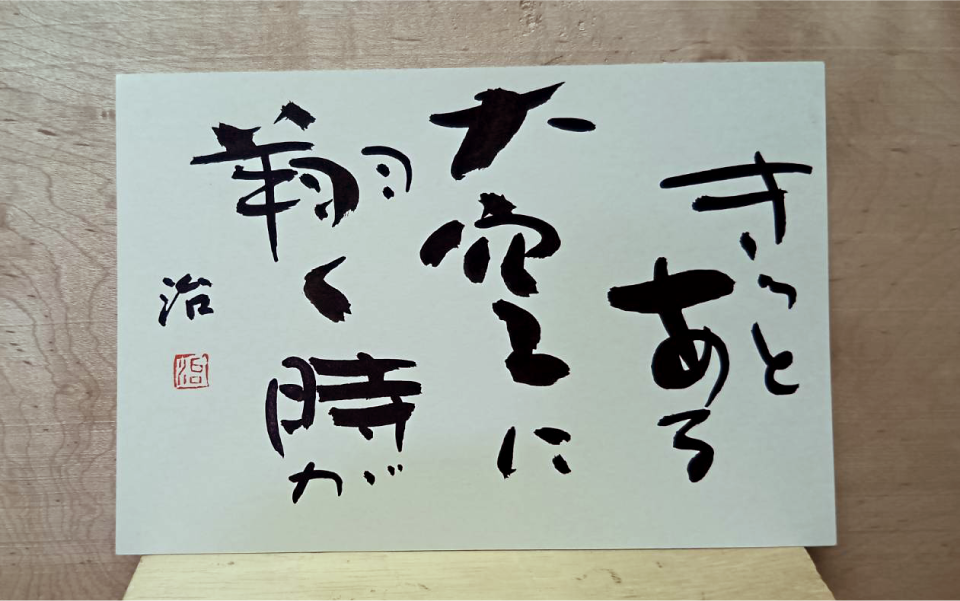 きっと
ある
大空に
翔く時が
治
治